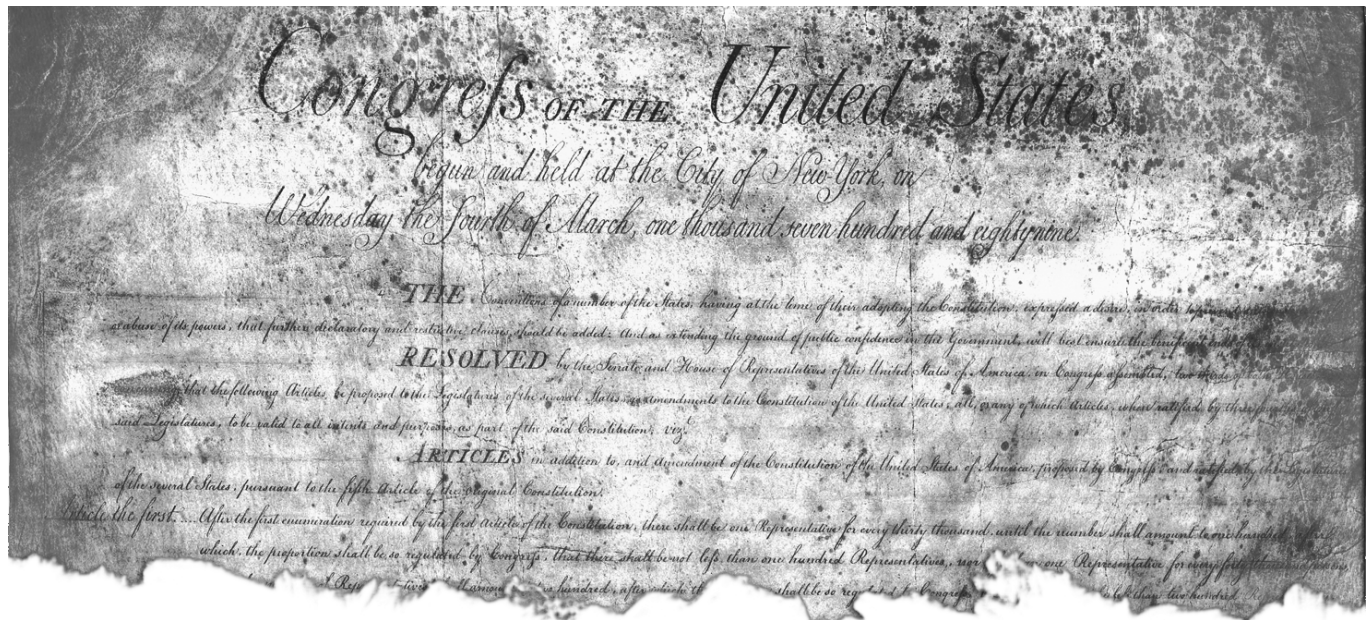 Congress OF THE United States,
begun and held at the City of New-York, on
Wednesday the fourth of March, one thousand seven hundred and eighty nine.
THE Conventions of a number of the States, having at the time of their adopting the Constitution, expressed a desire, in order to
or abuse of its powers, that further declaratory and restrictive clauses should be added: And as extending the ground of public confidence in the Government, will best ensure the beneficent ends of
RESOLVED by the Senate and House of Representatives of the United States of America, in Congress assembled, two thirds
that the following Articles be proposed to the Legislatures of the several States, as amendments to the Constitution of the United States, all, or any of which Articles, when ratified by three
said Legislatures, to be valid to all intents and purposes, as part of the said Constitution, viz.t
ARTICLES in addition to, and Amendment of the Constitution of the United States of America, proposed by Congress and ratified by the Legislatures
of the several States, pursuant to the fifth Article of the original Constitution.
Article the first.... After the first enumeration required by the first Article of the Constitution, there shall be one Representative for every thirty thousand, until the number shall amount to one hundred, after
which, the proportion shall be so regulated by Congress, that there shall be not less than one hundred Representatives, nor one Representative for every forty thousand persons,
hundred, after which shall be so Congress, less than two hundred